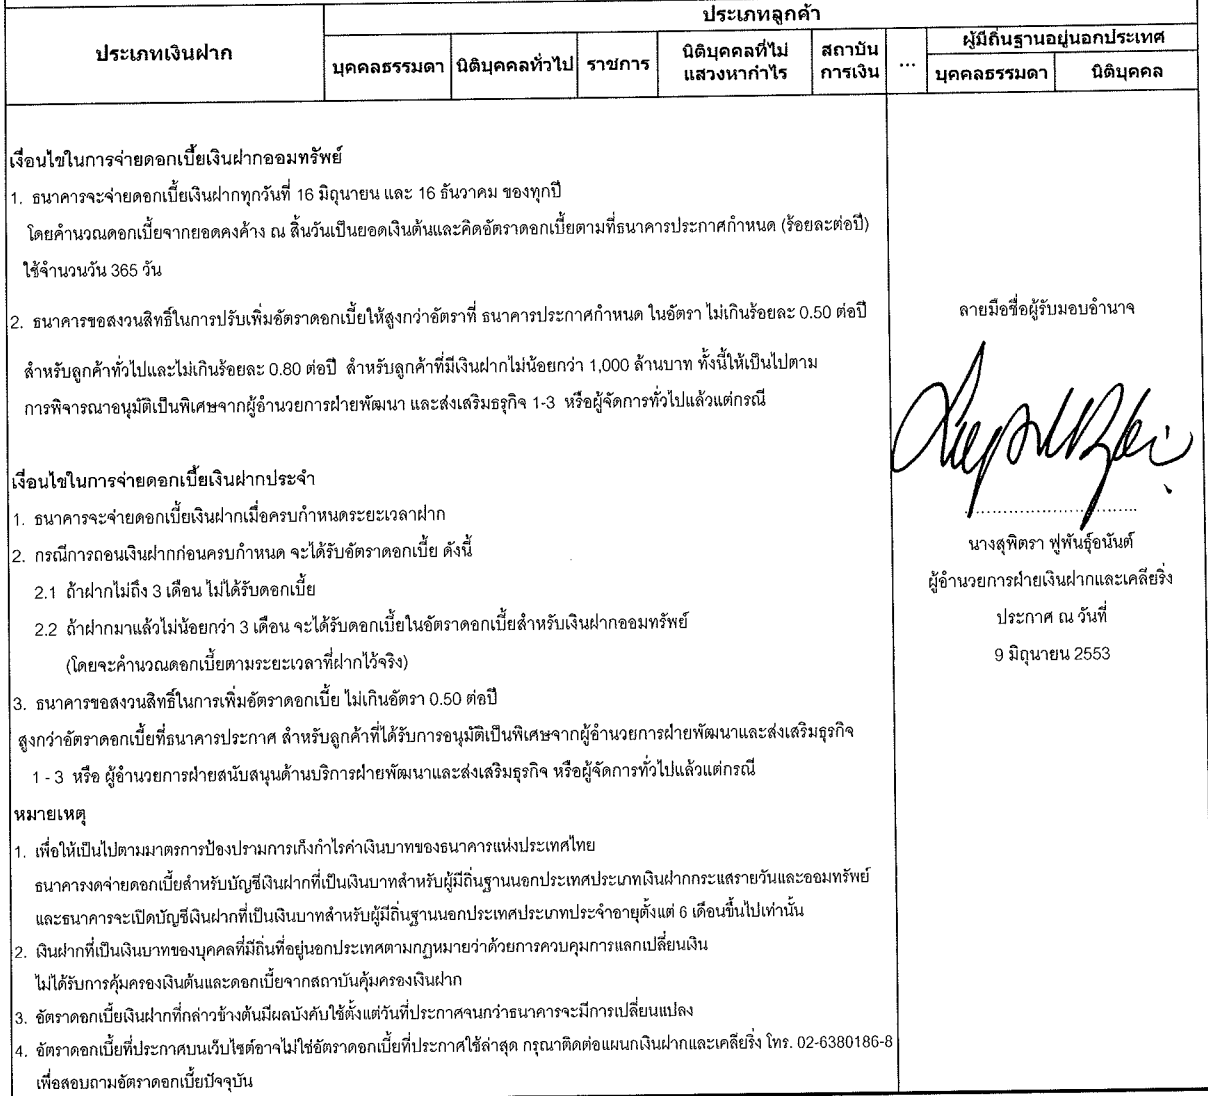 ประเภทเงินฝาก
ประเภทลูกค้า
บุคคลธรรมดา
นิติบุคคลทั่วไป
ราชการ
นิติบุคคลที่ไม่
แสวงหากำไร
สถาบัน
การเงิน
...
ผู้มีถิ่นฐานอยู่นอกประเทศ
บุคคลธรรมดา
นิติบุคคล
เงื่อนไขในการจ่ายดอกเบี้ยเงินฝากออมทรัพย์
1. ธนาคารจะจ่ายดอกเบี้ยเงินฝากทุกวันที่ 16 มิถุนายน และ 16 ธันวาคม ของทุกปี
โดยคำนวณดอกเบี้ยจากยอดคงค้าง ณ สิ้นวันเป็นยอดเงินต้นและคิดอัตราดอกเบี้ยตามที่ธนาคารประกาศกำหนด (ร้อยละต่อปี)
ใช้จำนวนวัน 365 วัน
2. ธนาคารขอสงวนสิทธิ์ในการปรับเพิ่มอัตราดอกเบี้ยให้สูงกว่าอัตราที่ ธนาคารประกาศกำหนด ในอัตรา ไม่เกินร้อยละ 0.50 ต่อปี
สำหรับลูกค้าทั่วไปและไม่เกินร้อยละ 0.80 ต่อปี สำหรับลูกค้าที่มีเงินฝากไม่น้อยกว่า 1,000 ล้านบาท ทั้งนี้ให้เป็นไปตาม
การพิจารณาอนุมัติเป็นพิเศษจากผู้อำนวยการฝ่ายพัฒนา และส่งเสริมธุรกิจ 1-3 หรือผู้จัดการทั่วไปแล้วแต่กรณี
เงื่อนไขในการจ่ายดอกเบี้ยเงินฝากประจำ
1. ธนาคารจะจ่ายดอกเบี้ยเงินฝากเมื่อครบกำหนดระยะเวลาฝาก
2. กรณีการถอนเงินฝากก่อนครบกำหนด จะได้รับอัตราดอกเบี้ย ดังนี้
2.1 ถ้าฝากไม่ถึง 3 เดือน ไม่ได้รับดอกเบี้ย
2.2 ถ้าฝากมาแล้วไม่น้อยกว่า 3 เดือน จะได้รับดอกเบี้ยในอัตราดอกเบี้ยสำหรับเงินฝากออมทรัพย์
(โดยจะคำนวณดอกเบี้ยตามระยะเวลาที่ฝากไว้จริง)
3. ธนาคารขอสงวนสิทธิ์ในการเพิ่มอัตราดอกเบี้ย ไม่เกินอัตรา 0.50 ต่อปี
สูงกว่าอัตราดอกเบี้ยที่ธนาคารประกาศ สำหรับลูกค้าที่ได้รับการอนุมัติเป็นพิเศษจากผู้อำนวยการฝ่ายพัฒนาและส่งเสริมธุรกิจ
1 - 3 หรือ ผู้อำนวยการฝ่ายสนับสนุนด้านบริการฝ่ายพัฒนาและส่งเสริมธุรกิจ หรือผู้จัดการทั่วไปแล้วแต่กรณี
หมายเหตุ
1. เพื่อให้เป็นไปตามมาตรการป้องปรามการเก็งกำไรค่าเงินบาทของธนาคารแห่งประเทศไทย
ธนาคารงดจ่ายดอกเบี้ยสำหรับบัญชีเงินฝากที่เป็นเงินบาทสำหรับผู้มีถิ่นฐานนอกประเทศประเภทเงินฝากกระแสรายวันและออมทรัพย์
และธนาคารจะเปิดบัญชีเงินฝากที่เป็นเงินบาทสำหรับผู้มีถิ่นฐานนอกประเทศประเภทประจำอายุตั้งแต่ 6 เดือนขึ้นไปเท่านั้น
2. เงินฝากที่เป็นเงินบาทของบุคคลที่มีถิ่นที่อยู่นอกประเทศตามกฎหมายว่าด้วยการควบคุมการแลกเปลี่ยนเงิน
ไม่ได้รับการคุ้มครองเงินต้นและดอกเบี้ยจากสถาบันคุ้มครองเงินฝาก
3. อัตราดอกเบี้ยเงินฝากที่กล่าวข้างต้นมีผลบังคับใช้ตั้งแต่วันที่ประกาศจนกว่าธนาคารจะมีการเปลี่ยนแปลง
4. อัตราดอกเบี้ยที่ประกาศบนเว็บไซต์อาจไม่ใช่อัตราดอกเบี้ยที่ประกาศใช้ล่าสุด กรุณาติดต่อแผนกเงินฝากและเคลียริ่ง โทร. 02-6380186-8
เพื่อสอบถามอัตราดอกเบี้ยปัจจุบัน
ลายมือชื่อผู้รับมอบอำนาจ
นางสุพิตรา ฟูพันธุ์อนันต์
ผู้อำนวยการฝ่ายเงินฝากและเคลียริ่ง
ประกาศ ณ วันที่
9 มิถุนายน 2553